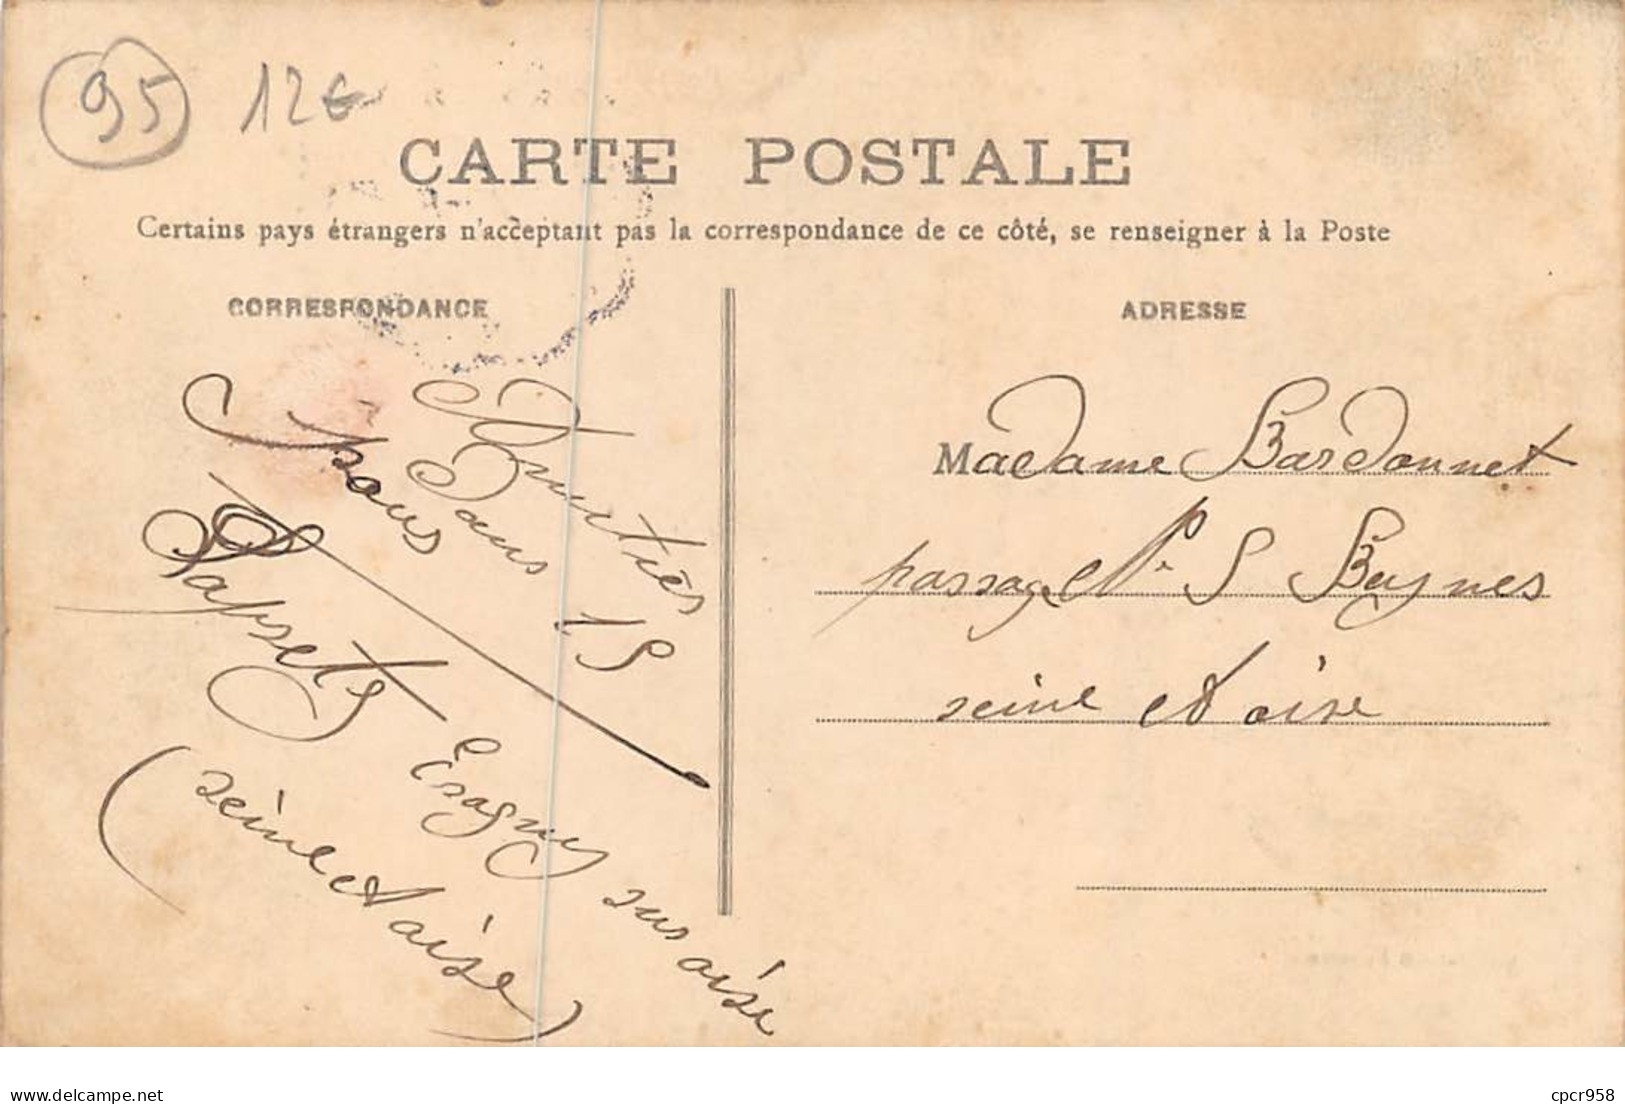 95 12€
CARTE POSTALE
Certains pays étrangers n'acceptant pas la correspondance de ce côté, se renseigner à la Poste
CORRESPONDANCE
dans 15
Jours
Eragny sur oise
(seine et oise)
ADRESSE
Madame Bardonnet
passage Nº 5 Beynes
seine et oise
delcampe.net
cpcr958